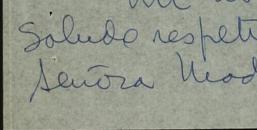 Saludo respet
Señora Mad